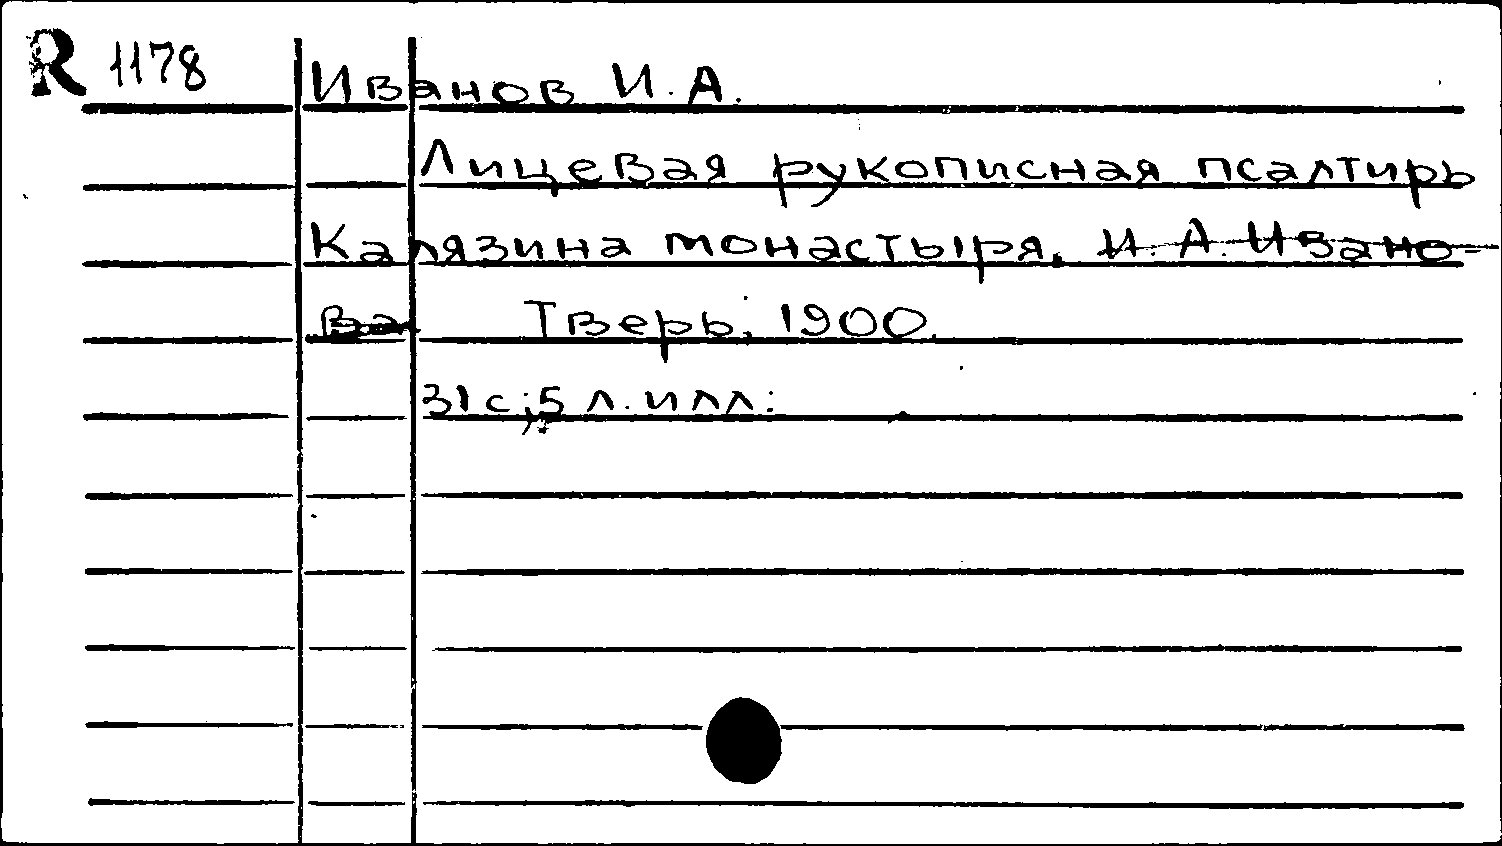 R 1178 Иванов И. А.
Лицевая рукописная псалтирь
Калязина монастыря. И. А. Ивано-
ва Тверь, 1900.
31 с; 5 л. илл: